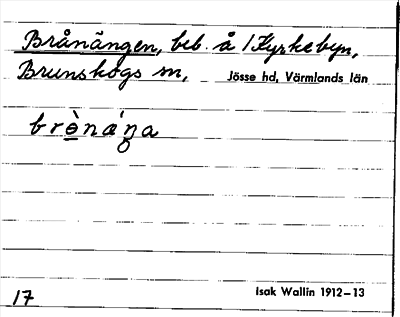 Brånängen, beb. å 1 Kyrkebyn,
Brunskogs sn, Jösse hd, Värmlands län
brò̠næ´ŋa
17 Isak Wallin 1912–13